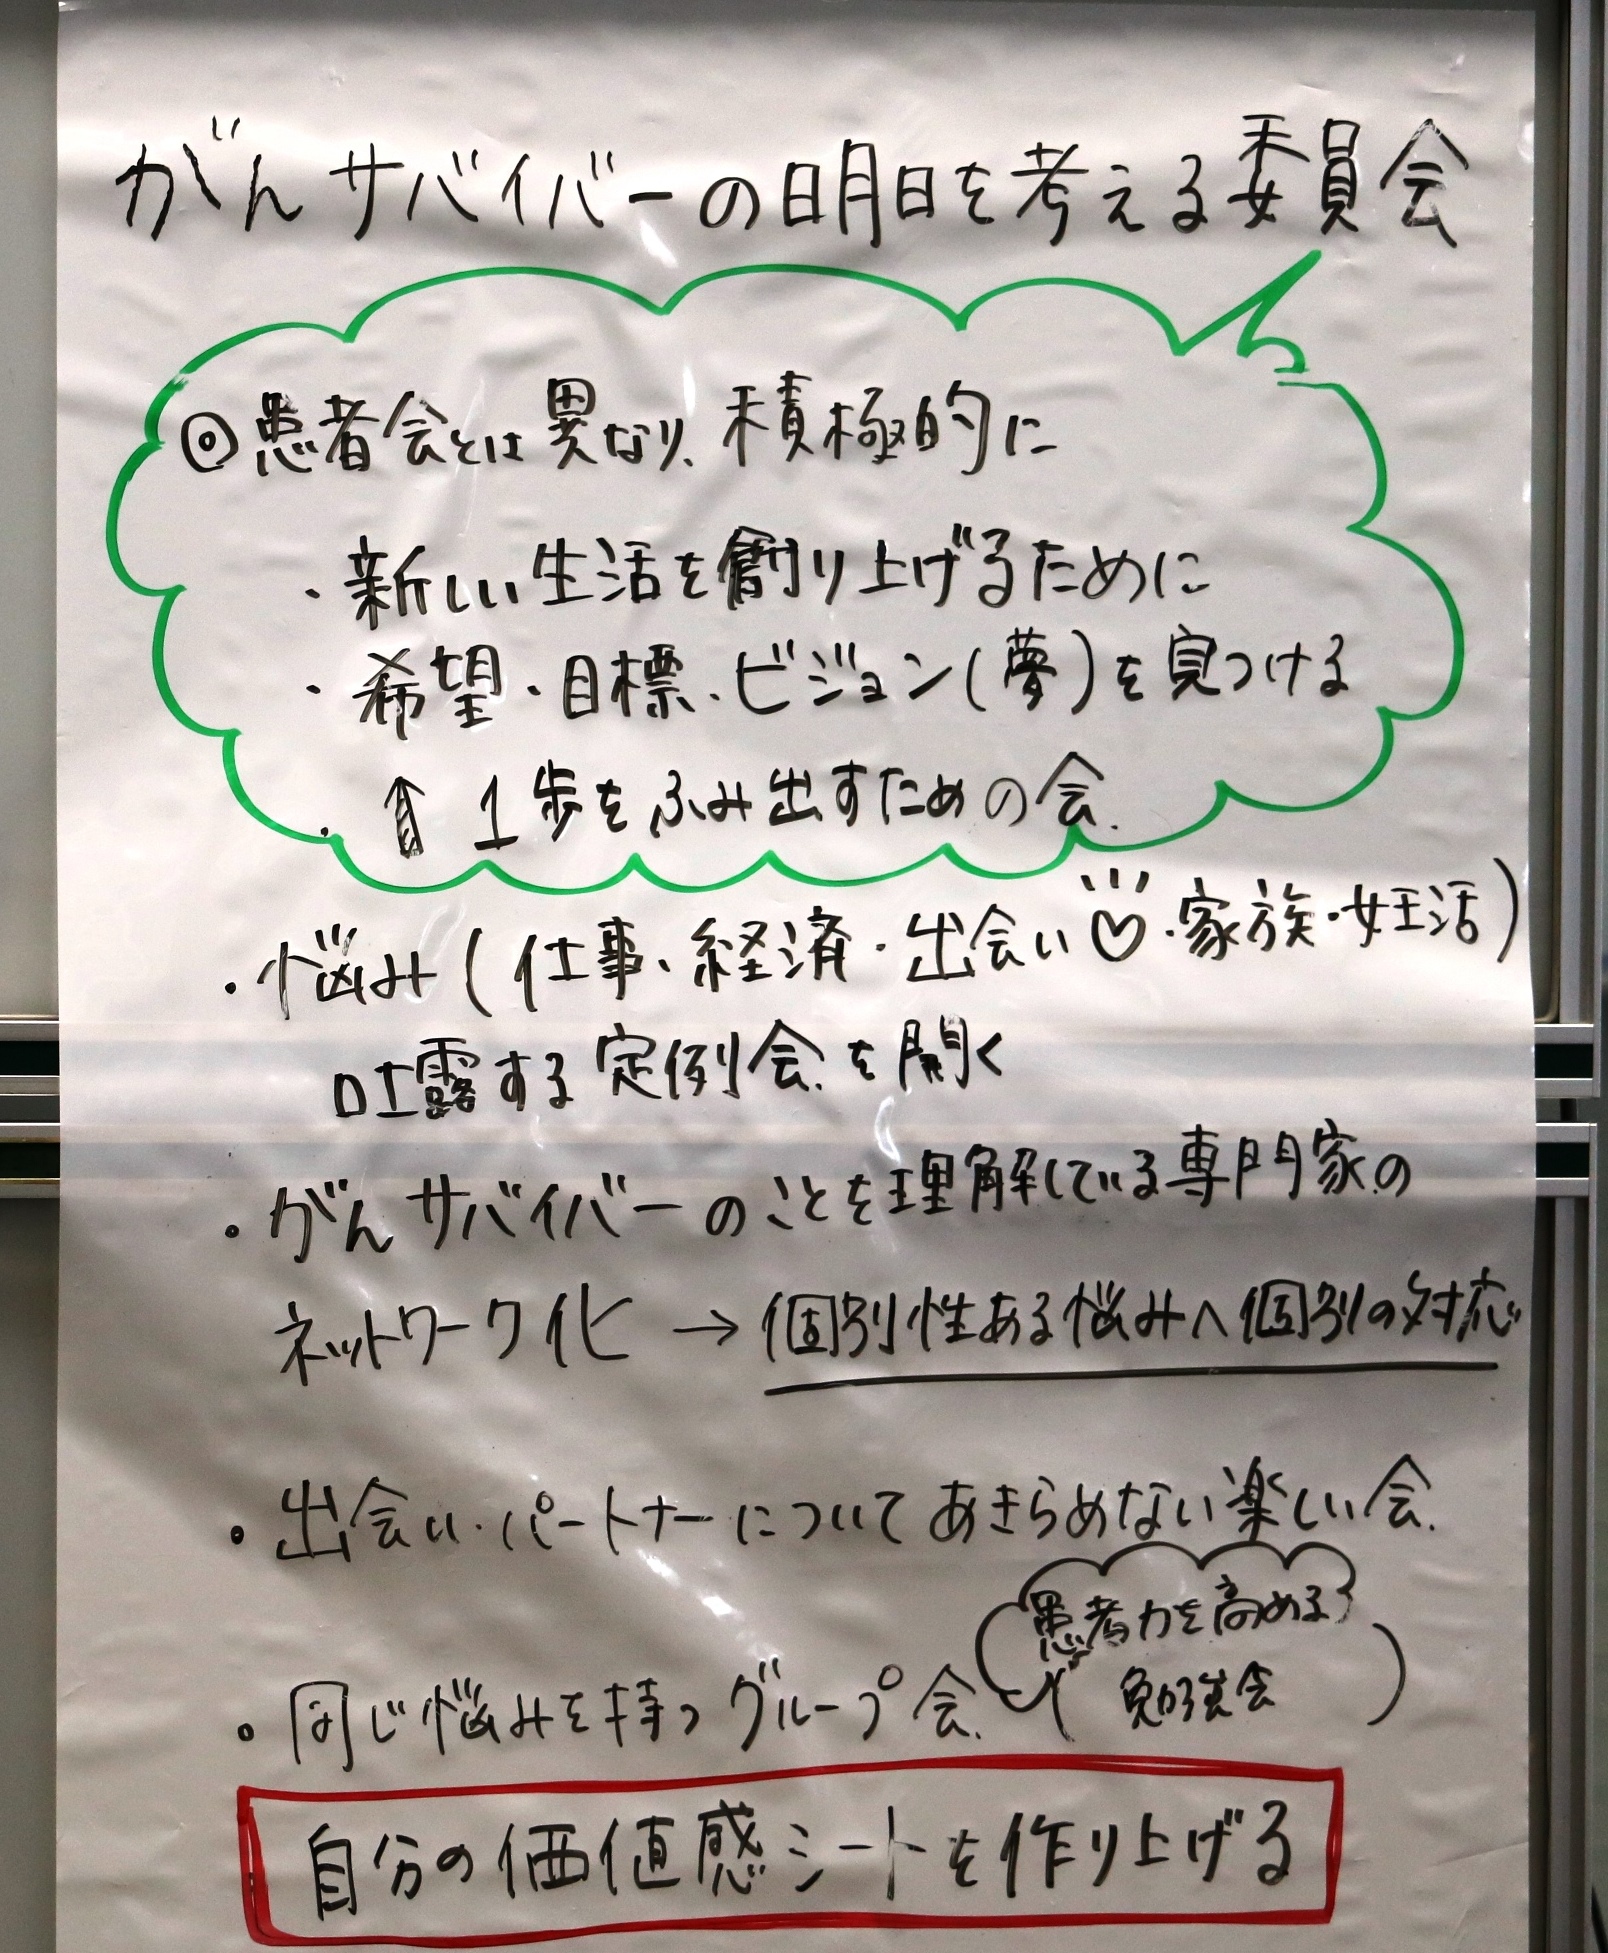 がんサバイバーの明日を考える委員会
◎患者会とは異なり、積極的に
・新しい生活を創り上げるために
・希望・目標・ビジョン(夢)を見つける
↑ 1歩をふみ出すための会.
・悩み(仕事・経済・出会い♡・家族・妊活)
吐露する定例会を開く
・がんサバイバーのことを理解している専門家の
ネットワーク化 → 個別性ある悩みへ個別の対応
・出会い・パートナーについてあきらめない楽しい会.
患者力を高める
・同じ悩みを持つグループ会. ( 勉強会 )
自分の価値感シートを作り上げる